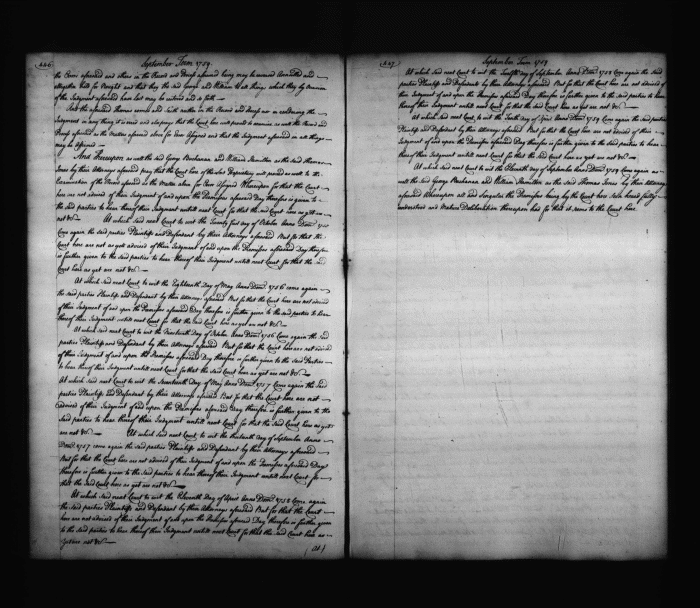 (446)
September Term 1759
the Errors aforesaid and others in the Record and Process aforesaid being may be reversed Annulled and
altogether held for Nought and that they the said George and William to all things which they by Reason
of the Judgment aforesaid have lost may be restored and so forth
And the aforesaid Thomas Jones said that neither in the Record and Process nor in rendering the
Judgment in any thing is there Error and also prays that the Court here will proceed to examine as well the Record and
Process aforesaid as the Matters aforesaid above for Error Assigned and that the Judgment aforesaid in all things
may be Affirmed
And thereupon as well the said George Buchanan and William Hamilton as the said Thomas
Jones by their Attorneys aforesaid pray that the Court here will proceed as well to the
Examination of the Record aforesaid as the Matters above for Error Assigned Whereupon for that the Court
here are not advised of their Judgment of and upon the Premises aforesaid Day therefore is given to
the said parties to hear thereof their Judgment untill next Court for that the said Court here as yet are
not &c
At which said next Court to wit the Twenty first day of October Anno Domi
Come again the said parties Plaintiffs and Defendant by their Attorneys aforesaid But for that the
Court here are not as yet advised of their Judgment of and upon the Premises aforesaid Day therefore
is further given to the said parties to hear thereof their Judgment untill next Court for that the said
Court here as yet are not &c
At which said next Court to wit the Eighteenth Day of May Anno Domi 1756 come again
the said parties Plaintiffs and Defendant by their Attorneys aforesaid But for that the Court here are not advised
of their Judgment of and upon the Premises aforesaid Day therefore is further given to the said parties to hear
thereof their Judgment untill next Court for that the said Court here as yet are not &c
At which said next Court to wit the Nineteenth Day of October Anno Domi 1756 Come again the said
parties Plaintiffs and Defendant by their Attorneys aforesaid But for that the Court here are not advised
of their Judgment of and upon the Premises aforesaid Day therefore is further given to the said Parties
to hear thereof their Judgment untill next Court for that the said Court here as yet are not &c
At which said next Court to wit the Seventeenth Day of May Anno Domi 1757 Come again the said
parties Plaintiffs and Defendant by their Attorneys aforesaid But for that the Court here are not
advised of their Judgment of and upon the Premises aforesaid Day therefore is further given to the
said parties to hear thereof their Judgment untill next Court for that the said Court here as yet
are not &c
At which said next Court to wit the thirteenth Day of September Anno
Domi 1757 come again the said parties Plaintiffs and Defendant by their Attorneys aforesaid
But for that the Court here are not advised of their Judgment of and upon the Premises aforesaid Day
therefore is further given to the said parties to hear thereof their Judgment untill next Court for
that the said Court here as yet are not &c
At which said next Court to wit the Eleventh Day of April Anno Domi 1758 Come again
the said parties Plaintiffs and Defendant by their Attorneys aforesaid But for that the Court
here are not advised of their Judgment of and upon the Premises aforesaid Day therefore is further given
to the said parties to hear thereof their Judgment untill next Court for that the said Court here as
yet are not &c
(At)
447
September Term 1759
At which said next Court to wit the Twelfth day of September Anno Domi 1758 Come again the said
parties Plaintiffs and Defendant by their Attorneys aforesaid But for that the Court here are not advised of
their Judgment of and upon the Premises aforesaid Day therefore is further given to the said parties to hear
thereof their Judgment untill next Court for that the said Court here as yet are not &c
At which said next Court to wit the Tenth day of April Anno Domi 1759 Come again the said parties
Plaintiffs and Defendant by their Attorneys aforesaid But for that the Court here are not advised of their
Judgment of and upon the Premises aforesaid Day therefore is further given to the said parties to hear
thereof their Judgment untill next Court for that the said Court here as yet are not &c
At which said next Court to wit the Eleventh day of September Anno Domi 1759 Come again as
well the said George Buchanan and William Hamilton as the said Thomas Jones by their Attorneys
aforesaid Whereupon all and Singular the Premises being by the Court here seen heard fully
understood and Mature Deliberation thereupon had for that it seems to the Court here